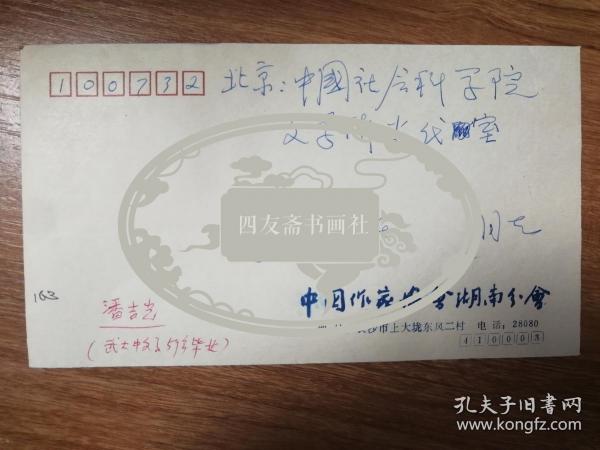 100732 北京:中國社会科学院
文学所当代室
四友斋书画社
同志
163
中国作家协会湖南分會
沙市上大垅东风二村 电话:28080
410003
潘吉光
(武大中文系 毕业)
孔夫子旧书网
www.kongfz.com